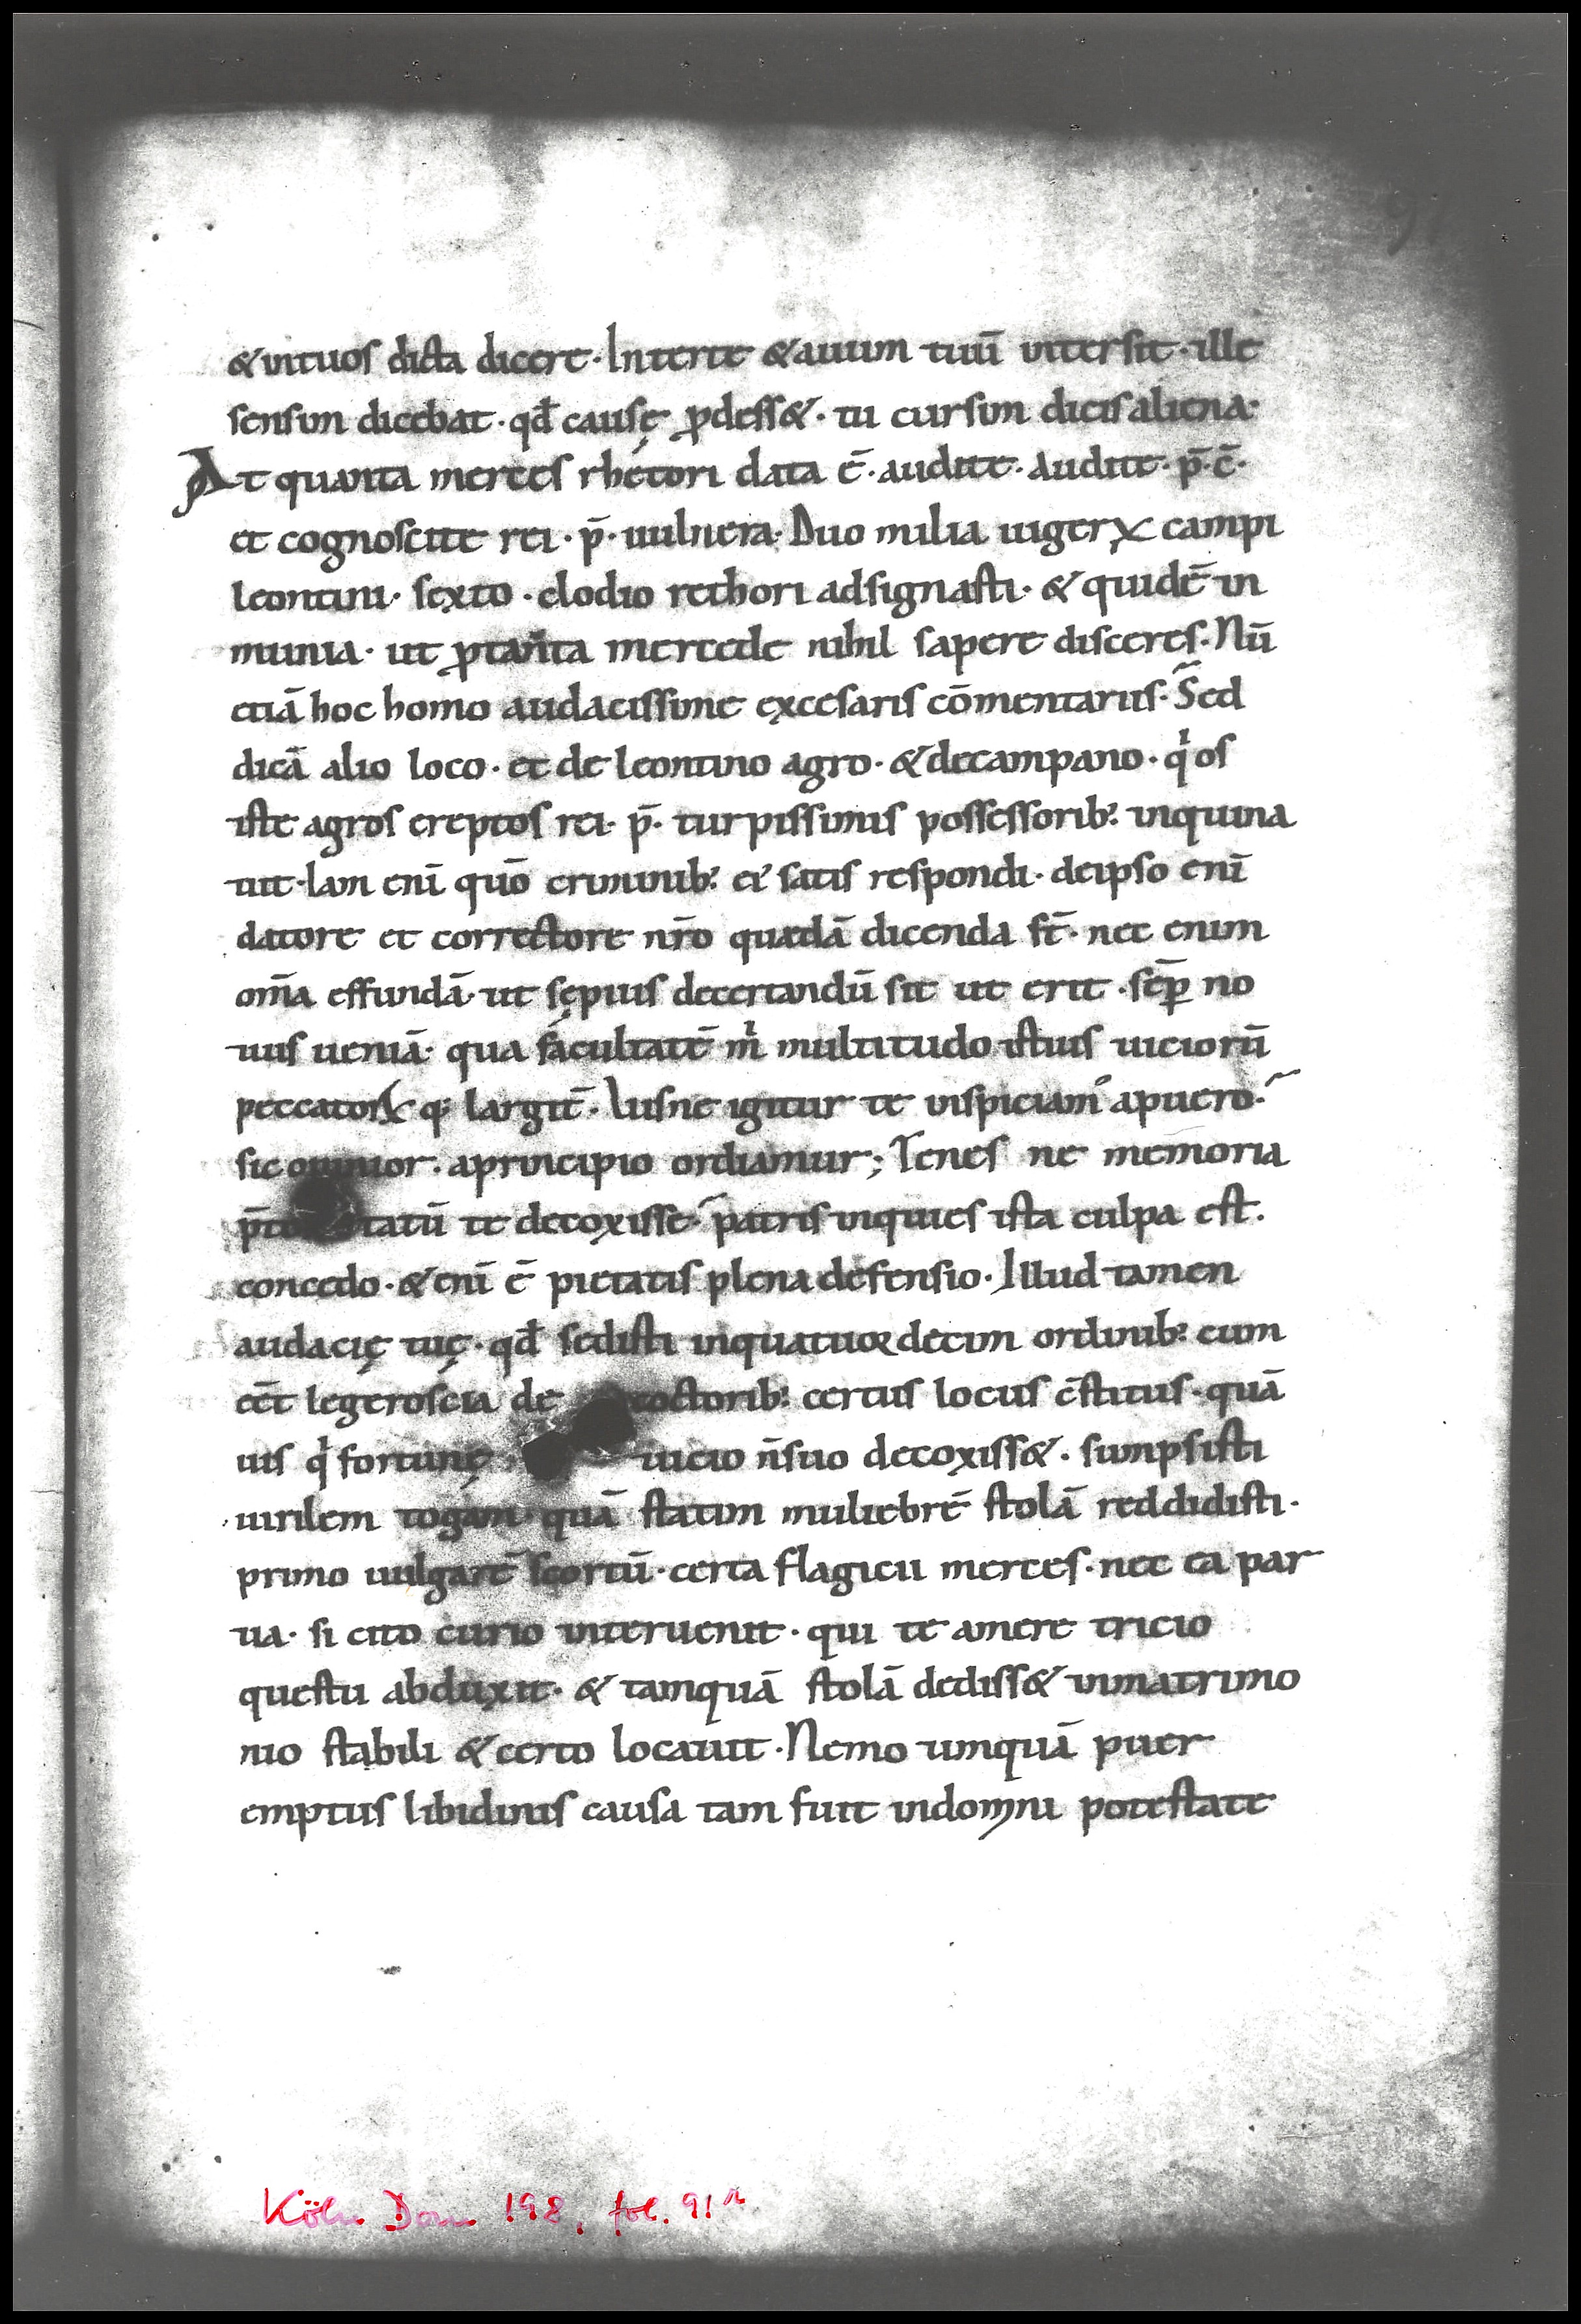 &intuos dicta dicere· Interte &auum tuū intersit· ille
sensim dicebat· qđ causę ꝓdess&· tu cursim dicis aliena·
At quanta merces rhetori data ē· audite· Audite· p̄·c̄·
et cognoscite rei· p̄· uulnera· Duo milia iugerꝝ campi
leontini· sexto· clodio rethori adsignasti· & quidē in
munia· ut ꝓ tanta mercede nihil sapere disceres· Nū
etiā hoc homo audacissime excesaris cōmentariis· Sed
dicā alio loco· et de leontino agro· & decampano· qͥos
iste agros ereptos rei· p̄· turpissimis possessorib; inquina
uit· Iam enī quō criminib; ei satis respondi· deipso enī
datore et correctore nr̄o quædā dicenda st̄· nec enim
om̄a effundā· ut sępius decertandū sit ut erit· sēp no
uus ueniā· qua facultatē mͥ multitudo istius uiciorū
peccatorꝝ q; largit̄· Uisne igitur te inspiciam apuero·
sic opinor· aprincipio ordiamur; Tenes ne memoria
tatū te decoxisse· patris inquies ista culpa est·
concedo· & enī ē pietatis plena defensio· Illud tamen
audacię tuę· qđ sedisti inquatuordecim ordinib; cum
eēt lege roscia de coctorib; certus locus c̄stitus· quā
uis qͥ fortunę uicio n̄ suo decoxiss&· sumpsisti
uirilem togam· quā statim muliebrē stolā reddidisti·
primo uulgare scortū· certa flagicii merces· nec ea par
ua· si cito curio interuenit· qui te amere tricio
questu abduxit· & tamquā stolā dediss& inmatrimo
nio stabili & certo locauit· Nemo umquā puer
emptus libidinis causa tam fuit indomni potestate
Köln Dom 198, fol. 91r